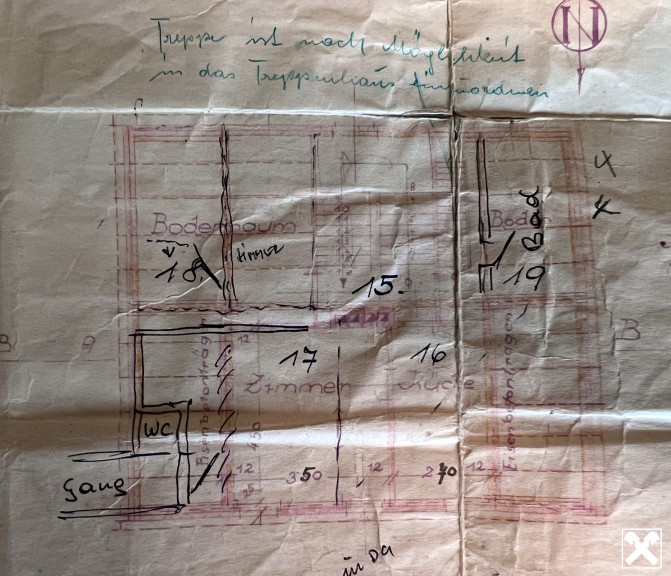 N
Treppe ist nach Möglichkeit
in das Treppenhaus einzuordnen
4
4
Bodenraum
Boden
Bad
Zimmer
18.
15.
19
B
B
12
17
16
Zimmer
Küche
Eisenbetonträger
Eisenbetonträger
WC
450
12
350
12
270
12
25
Gang
in DG